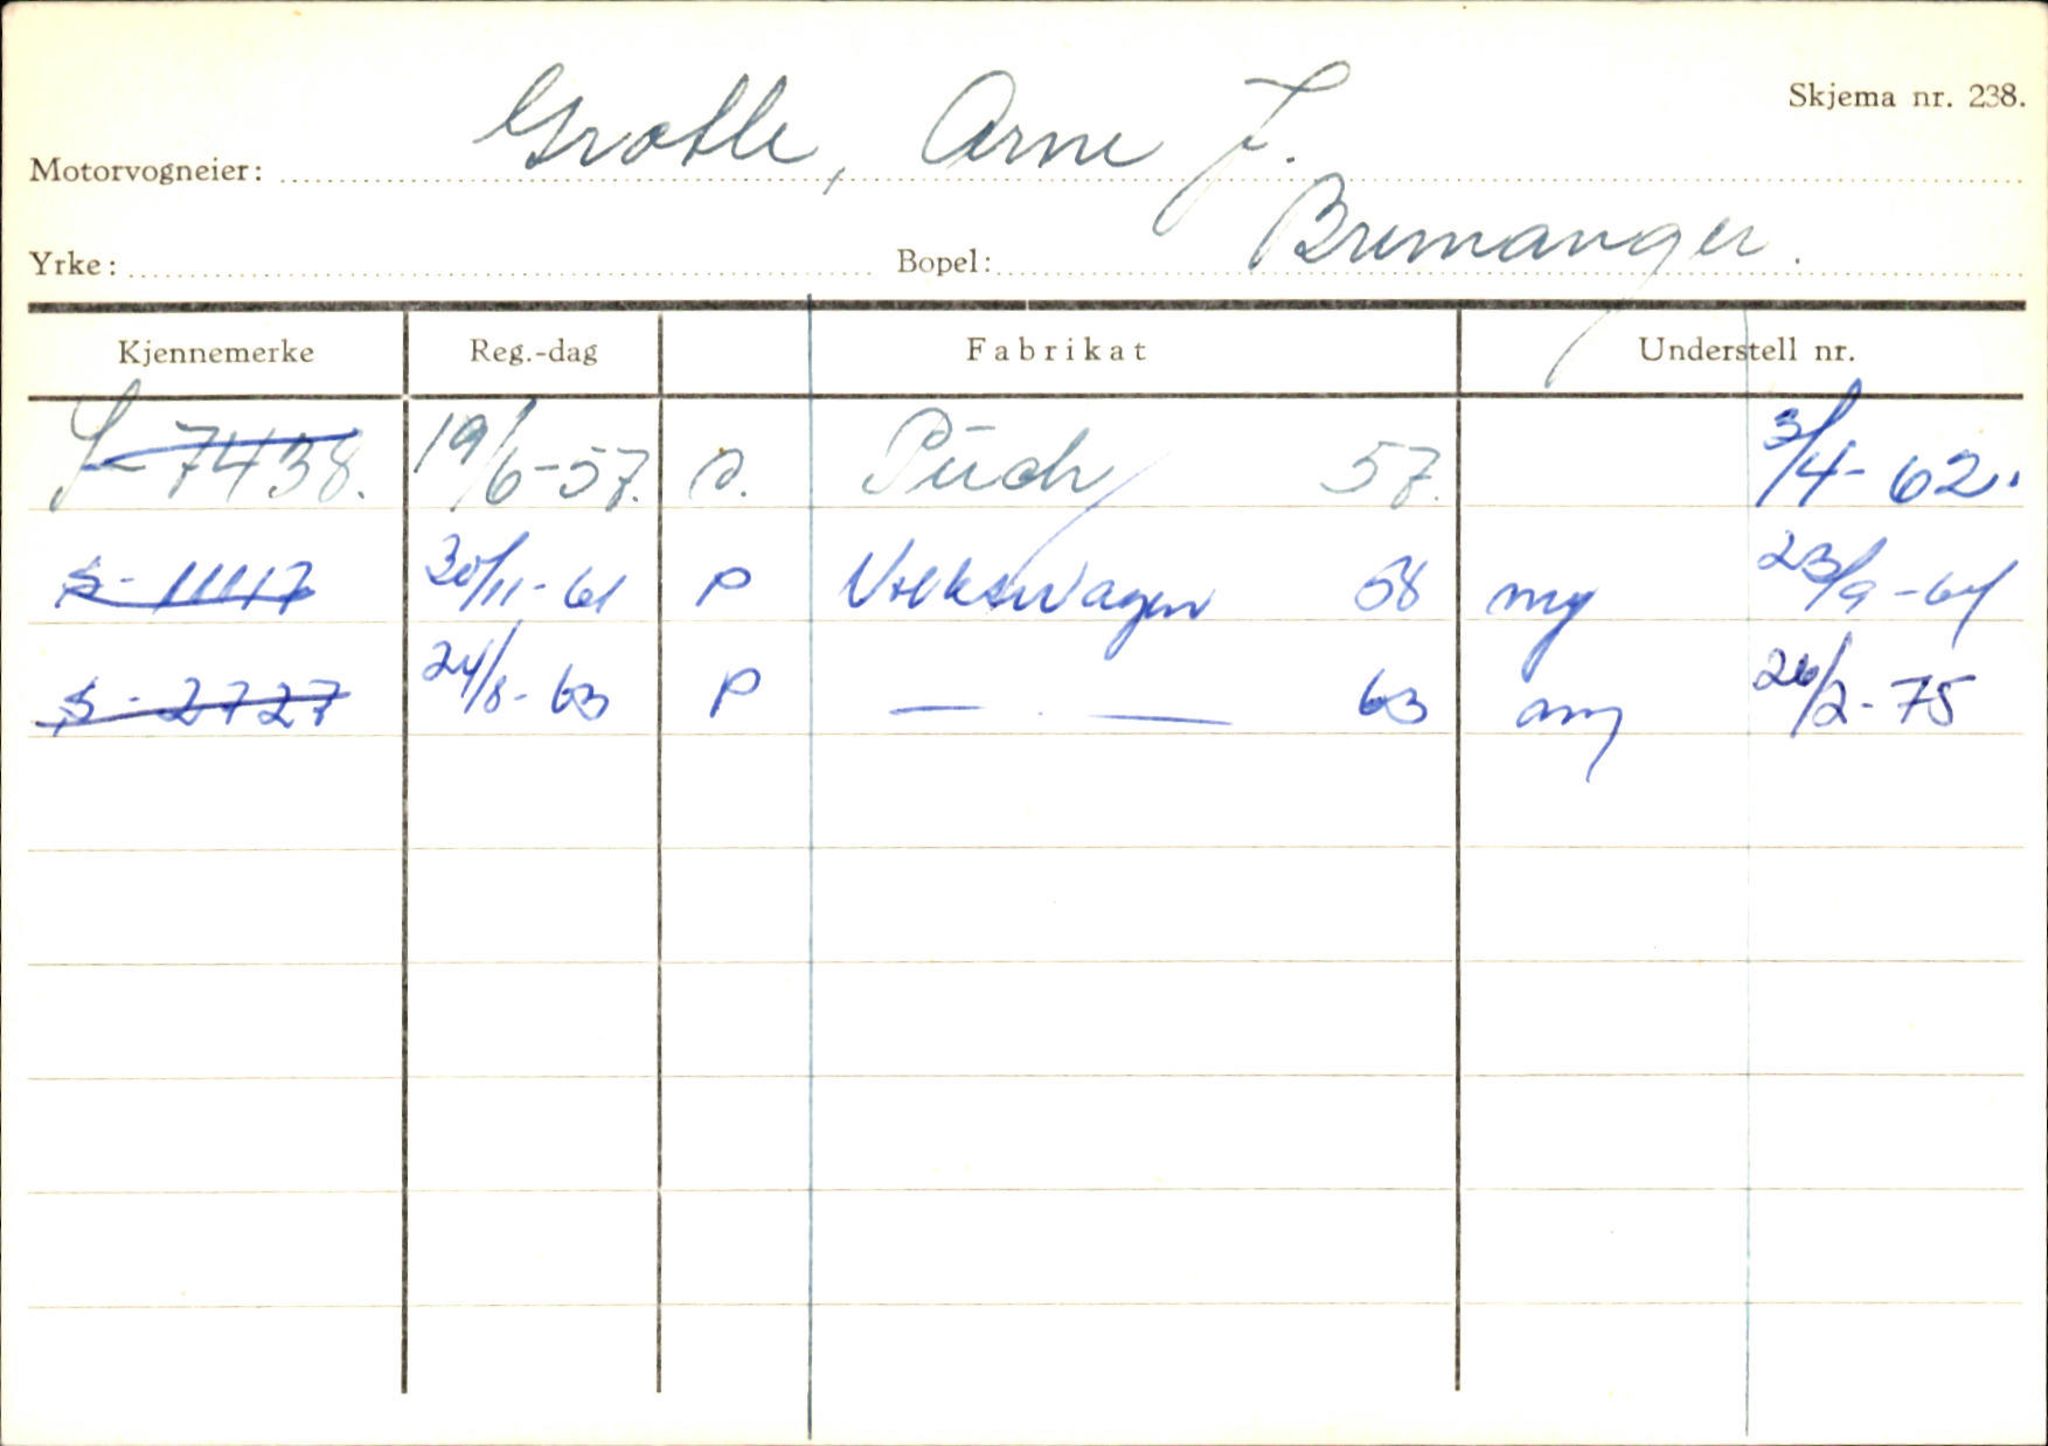 Skjema nr. 238.
Motorvogneier: Grotle, Arne J.
Yrke: Bopel: Bremanger.
Kjennemerke Reg.-dag Fabrikat Understell nr.
S-7438. 19/6-57. Puch 57. 3/4-62.
S-11117 30/11-61 P Volkswagen 58 my 23/9-64
S-2727 24/8-63 P — . — 63 26/2-75